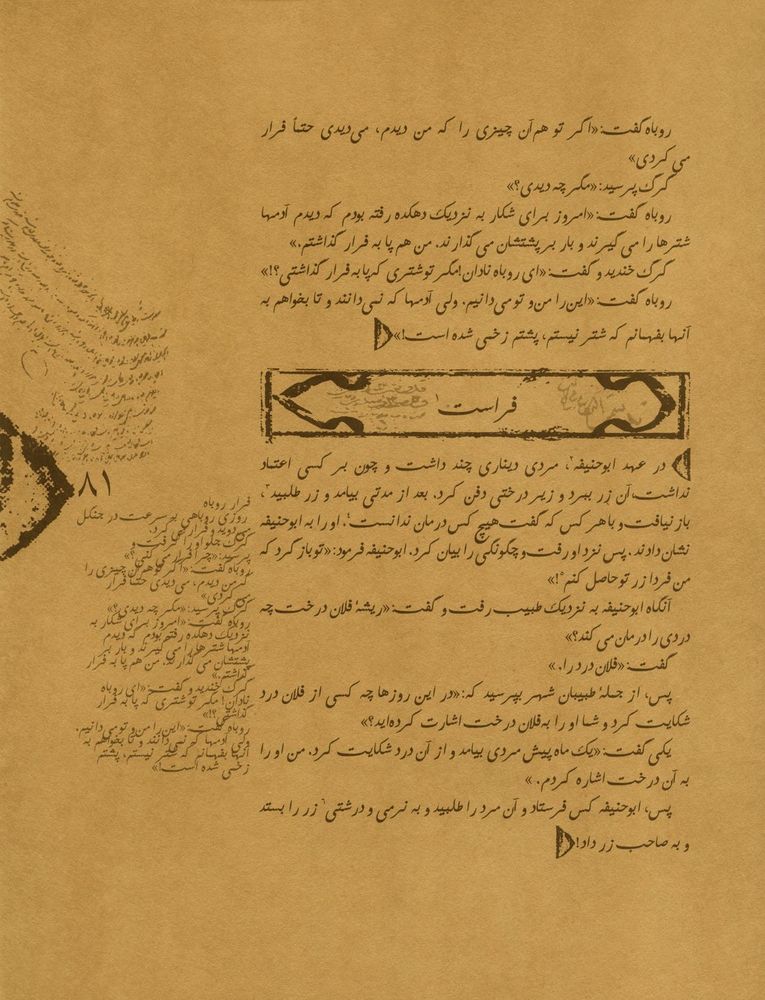 روباه گفت: «اگر تو هم‌آن چیزی را که من دیدم، می‌دیدی حتماً فرار
می کردی»
گرگ پرسید: «مگر چه دیدی؟»
روباه گفت: «امروز برای شکار به نزدیک دهکده رفته بودم که دیدم آدمها
شترها را می گیرند و بار بر پشتشان می گذارند. من هم پا به فرار گذاشتم.»
گرگ خندید و گفت: «ای روباه نادان! مگر تو شتری که پا به فرار گذاشتی؟!»
روباه گفت: «این را من و تو می دانیم. ولی آدمها که نمی دانند و تا بخواهم به
آنها بفهمانم که شتر نیستم، پشتم زخمی شده است!»
فراست۱
در عهد ابوحنیفه۲، مردی دیناری چند داشت و چون بر کسی اعتماد
نداشت، آن زر ببرد و زیر درختی دفن کرد. بعد از مدتی بیامد و زر طلبید۳،
باز نیافت و با هر کس که گفت هیچ کس درمان ندانست۴. او را به ابوحنیفه
نشان دادند. پس نزد او رفت و چگونگی را بیان کرد. ابوحنیفه فرمود: «تو باز گرد که
من فردا زر تو حاصل کنم۵!»
آنگاه ابوحنیفه به نزدیک طبیب رفت و گفت: «ریشهٔ فلان درخت چه
دردی را درمان می کند؟»
گفت: «فلان درد را.»
پس، از جملهٔ طبیبان شهر بپرسید که: «در این روزها چه کسی از فلان درد
شکایت کرد و شما او را به فلان درخت اشارت کرده‌اید؟»
یکی گفت: «یک ماه پیش مردی بیامد و از آن درد شکایت کرد. من او را
به آن درخت اشاره کردم.»
پس، ابوحنیفه کس فرستاد و آن مرد را طلبید و به نرمی و درشتی۶ زر را بستد
و به صاحب زر داد!
۸۱
فرار روباه
روزی روباهی به سرعت در جنگل
می دوید و فرار می کرد.
گرگ جلو او را گرفت و
پرسید: «چرا فرار می کنی؟»
روباه گفت: «اگر تو هم‌آن چیزی را
که من دیدم، می‌دیدی حتماً فرار
می کردی»
گرگ پرسید: «مگر چه دیدی؟»
روباه گفت: «امروز برای شکار به
نزدیک دهکده رفته بودم که دیدم
آدمها شترها را می گیرند و بار بر
پشتشان می گذارند. من هم پا به فرار
گذاشتم.»
گرگ خندید و گفت: «ای روباه
نادان! مگر تو شتری که پا به فرار
گذاشتی؟!»
روباه گفت: «این را من و تو می دانیم.
ولی آدمها که نمی دانند و تا بخواهم به
آنها بفهمانم که شتر نیستم، پشتم
زخمی شده است!»